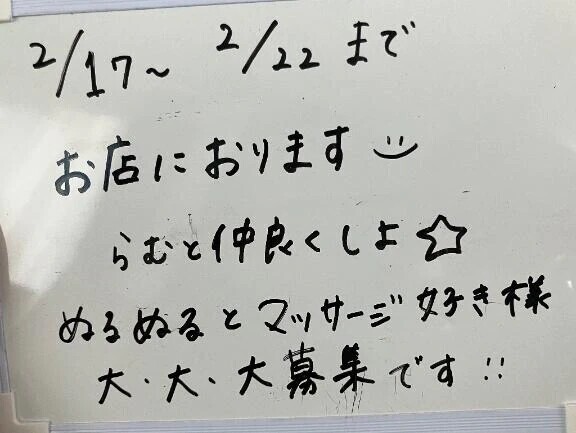 2/17～ 2/22 まで
お店におります
らむと仲良くしよ☆
ぬるぬるとマッサージ好き様
大・大・大募集です!!